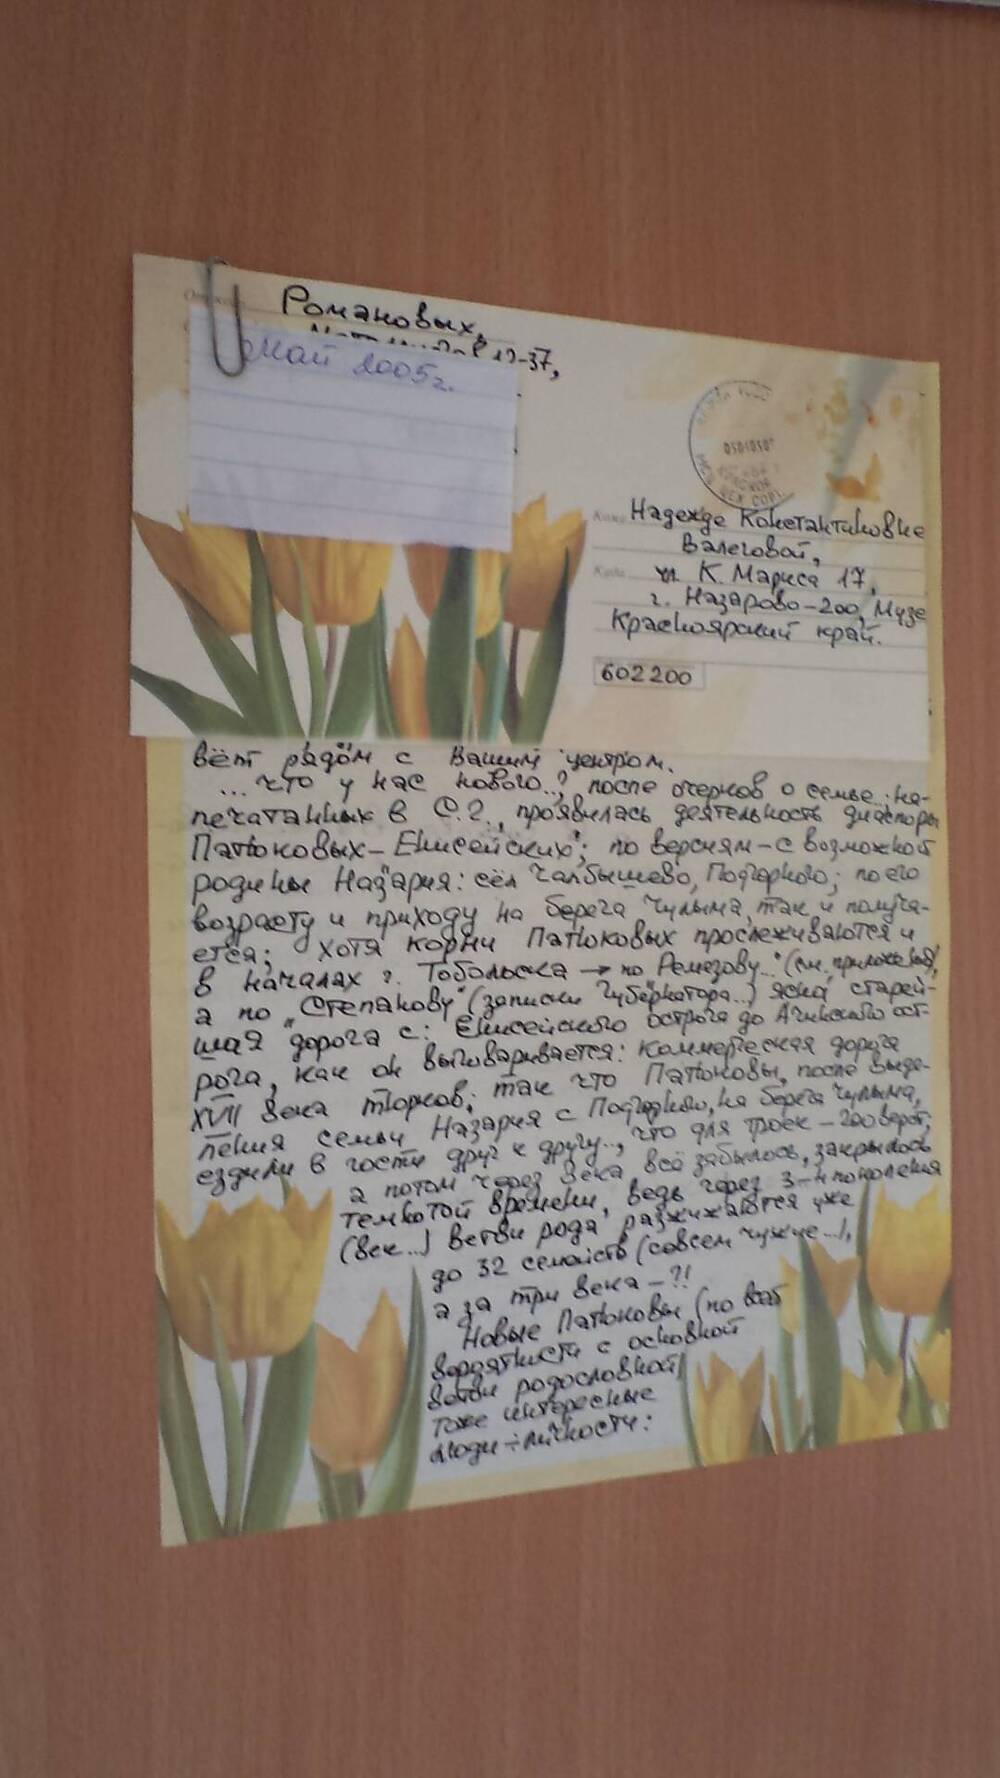 Романовых,
12-37,
май 2005г.
Кому Надежде Константиновне
Валеговой,
Куда ул К. Маркса 17,
г. Назарово-200, Музе
Красноярский край.
602200
вёт рядом с Вашим центром.
...что у нас нового..?, после очерков о семье, на-
печатанных в С.г., проявилась деятельность диаспоры
Патюковых-Енисейских; по версиям-с возможной
родины Назария: сёл Чалбышево, Подгорного; по его
возрасту и приходу на берега Чулыма, так и получа-
ется; хотя корни Патюковых прослеживаются и
в началах г. Тобольска → по Ремезову..." (см. приложения),
а по „Степанову" (записки Губернатора...) ясна старей-
шая дорога с: Енисейского острога до Ачинского ост-
рога, как он выговаривается: коммерческая дорога
XVII века торков; так что Патюковы, после выде-
ления семьи Назария с Подгорного, на берега Чулыма,
ездили в гости друг к другу.., что для троек - 200 верст,
а потом через века всё забылось, закрылось
темнотой времени, ведь через 3-4 поколения
(век...) ветви рода разжижаются уже
до 32 семейств (совсем чужие...),
а за три века - ?!
Новые Патюковы (по всей
вероятности с основной
ветви родословной)
тоже интересные
люди ÷ личности: